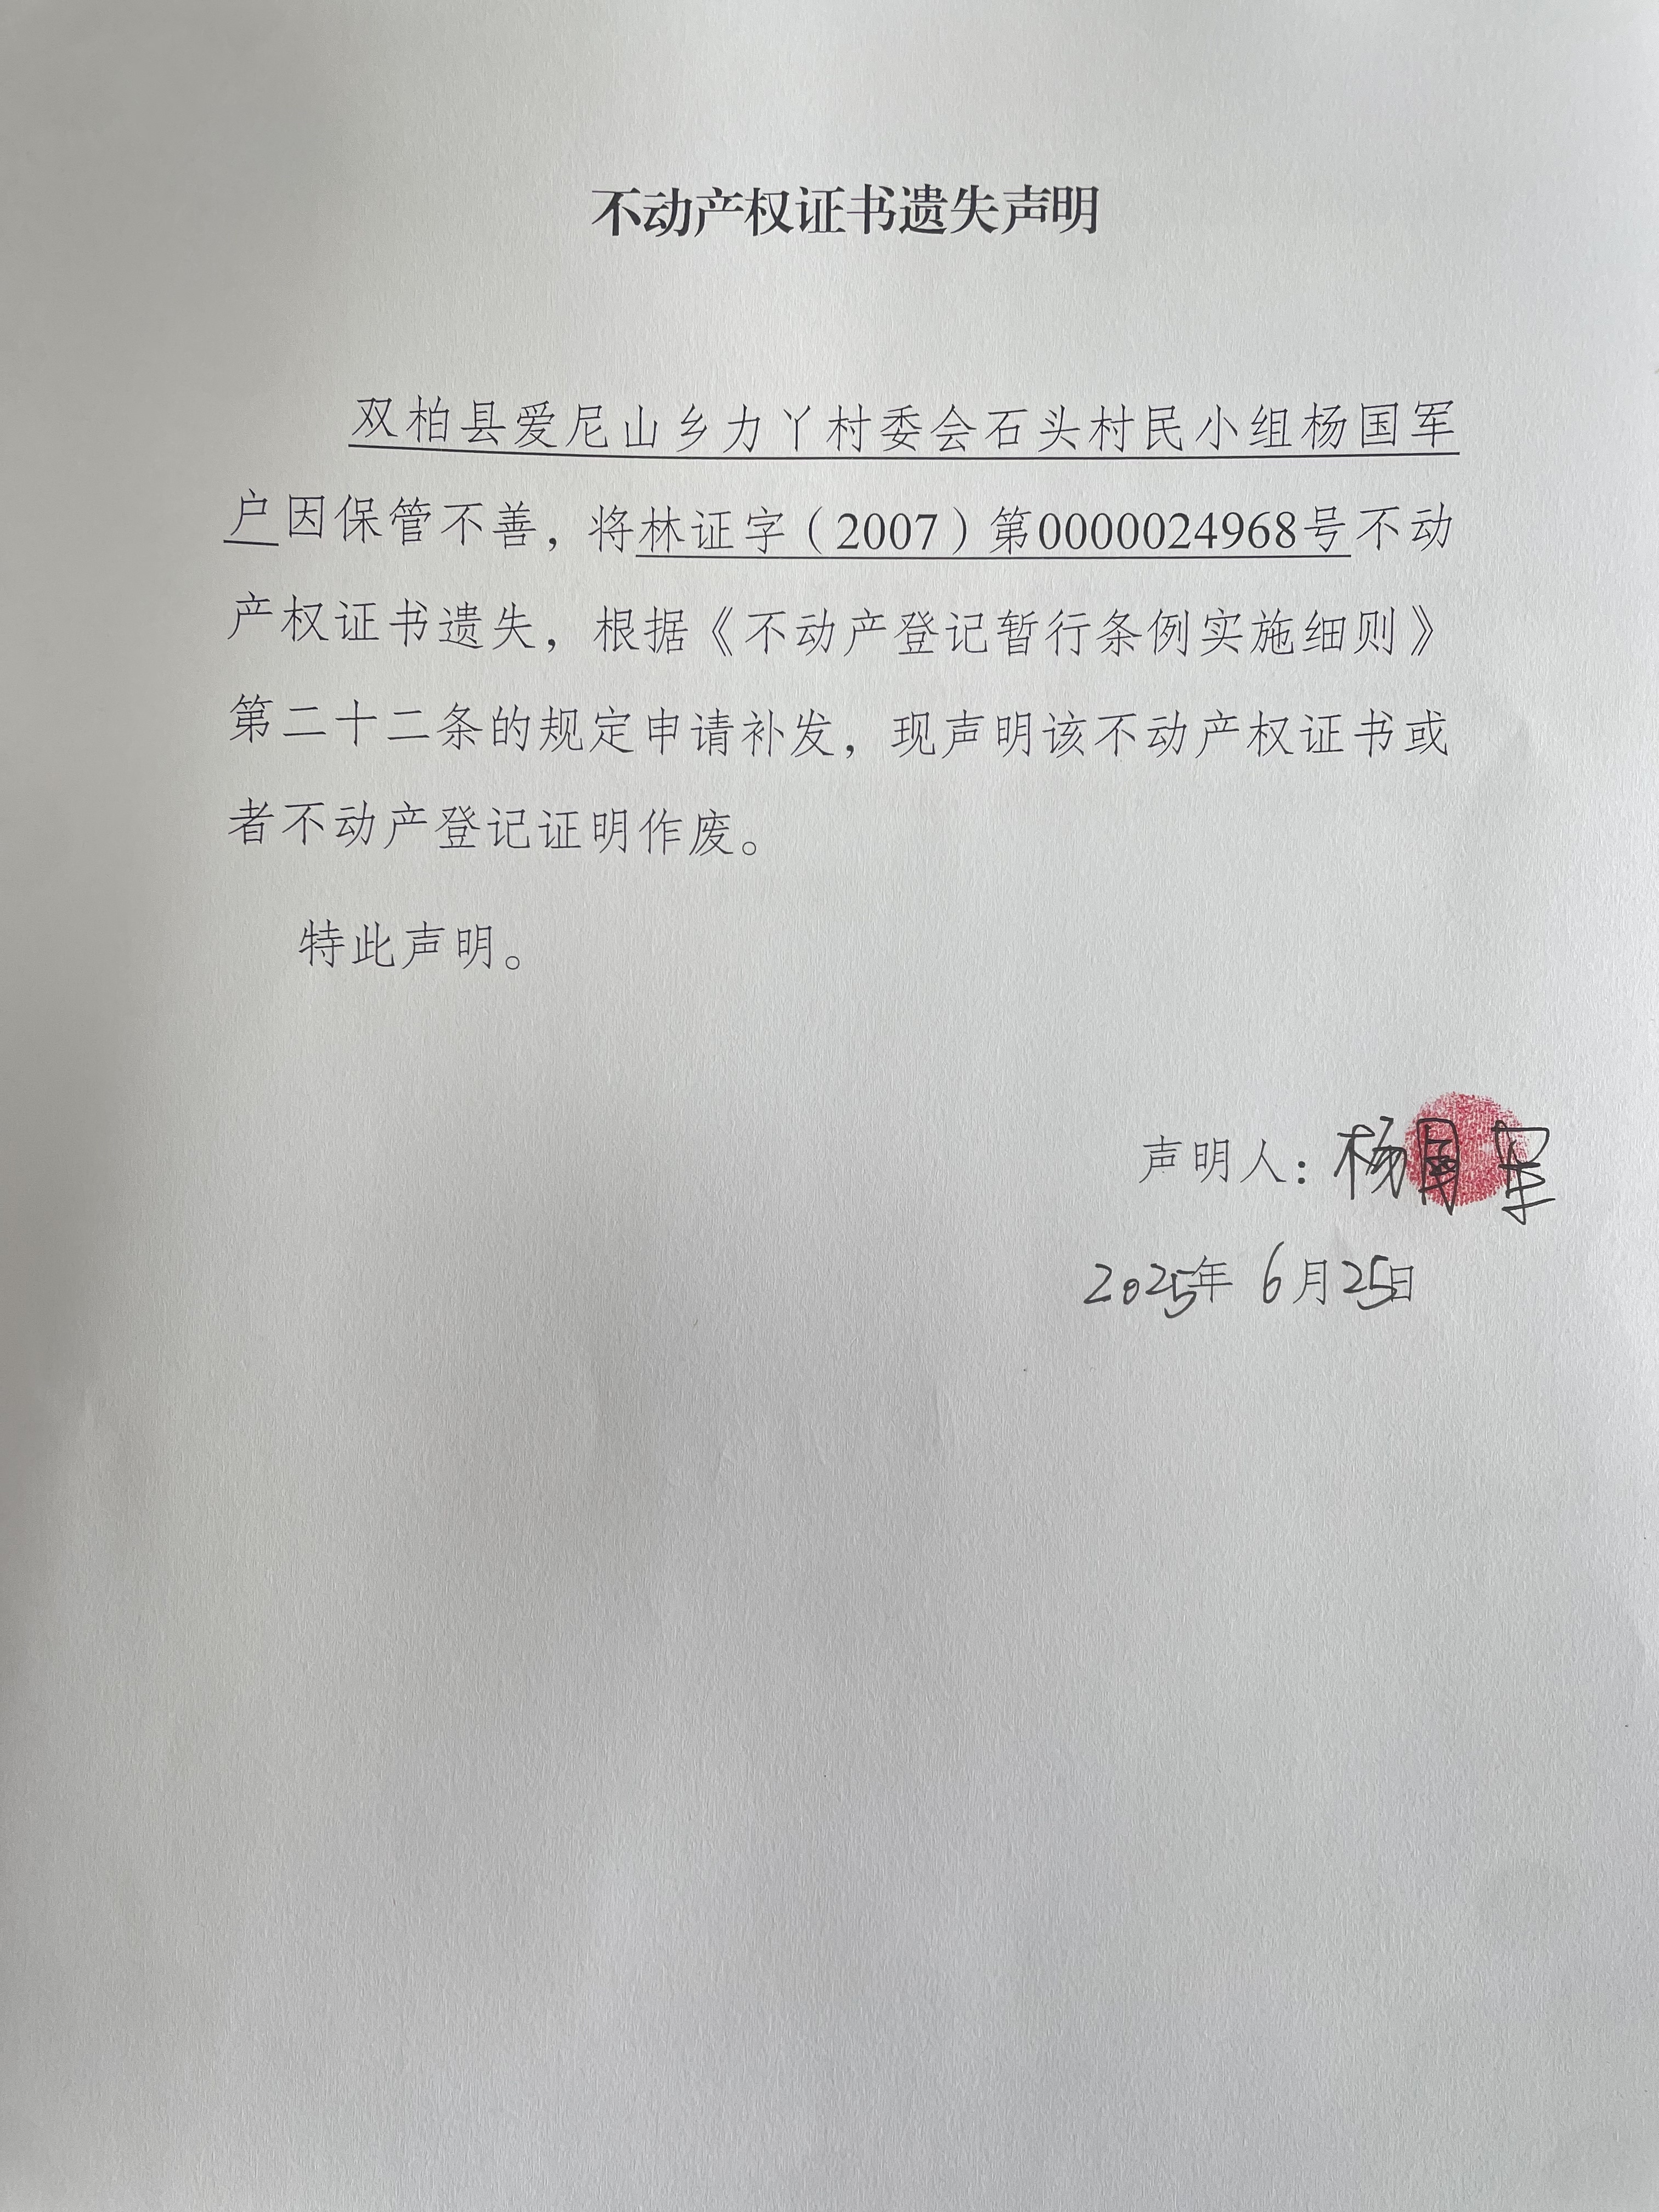 不动产权证书遗失声明
双柏县爱尼山乡力丫村委会石头村民小组杨国军
户因保管不善，将林证字（2007）第0000024968号不动
产权证书遗失，根据《不动产登记暂行条例实施细则》
第二十二条的规定申请补发，现声明该不动产权证书或
者不动产登记证明作废。
特此声明。
声明人：杨国军
2025年6月25日